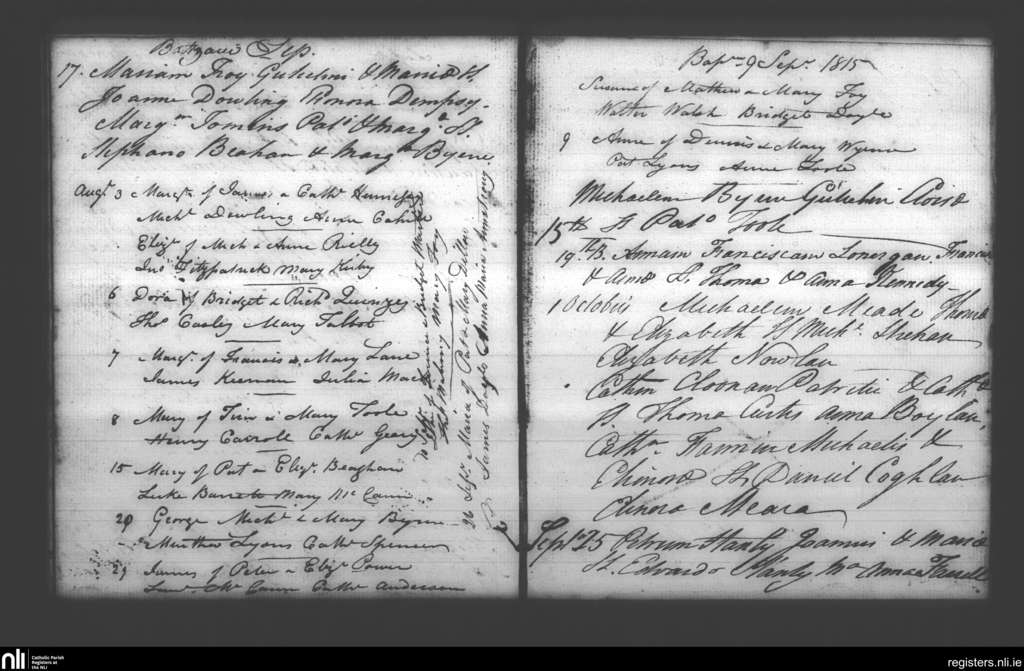 Sep.
17. Mariam Troy Gulielmi & Mariæ S.
Joanne Dowling Honora Dempsy.
Tomins Pat. & Marg. S.
Stephano Beahan & Marg. Byrne
Augt 3 Margt. of James & Cathe. Hennessy
Michl. Dowling Anne Cahill
Elizh. of Mich & Anne Rielly
Jno. Fitzpatrick Mary Kirby
6 Dora of Bridget & Richd.
Thos. Casley Mary Talbot
7 Margt. of Francis & Mary Lane
James Keenan Julia Mack
8 Mary of Tim & Mary Toole
Henry Carroll Cathe. Geary
15 Mary of Pat & Elizh. Beaghan
Luke Barrett Mary Mc Cann
20 George Michl. & Mary Byrne
Matthew Lyons Cathe. Spencer
29 James of Peter & Elizh. Power
Mc Cann Cathe. Anderson
10 Sepr. of James & Bridget
Thos. Mary Foy
26 Sepr. Maria of Pat & Mary Dillon
James Doyle Anna Maria Armstrong
Bapm. 9 Sepr. 1815
Susanna of Mathew & Mary Foy
Walter Walsh Bridget Doyle
9 Anne of Dennis & Mary Wynne
Pat Lyons Anne Toole
Michaelem Byrne Gulielmi
15th S. Pato. Toole
19th B. Annam Franciscam Lonergan. Francis
& Annæ S. Thoma & Anna Kennedy
1 Octobris Michaelem Meade Thomæ
& Elizabeth S. Michl. Shehan
Elizabeth Nowlan
Cathm Cloonan Patricii & Cathe
S. Thoma Curtis Anna Boylan,
Cathm. Fannin Michaelis &
Elinoræ S. Daniel Coghlan
Elinora Meara
Septr. 25 Petrum Hanly Joannis & Mariæ
S. Edwardo Hanly Anna Farrell
nli
Catholic Parish
Registers at
the NLI
registers.nli.ie